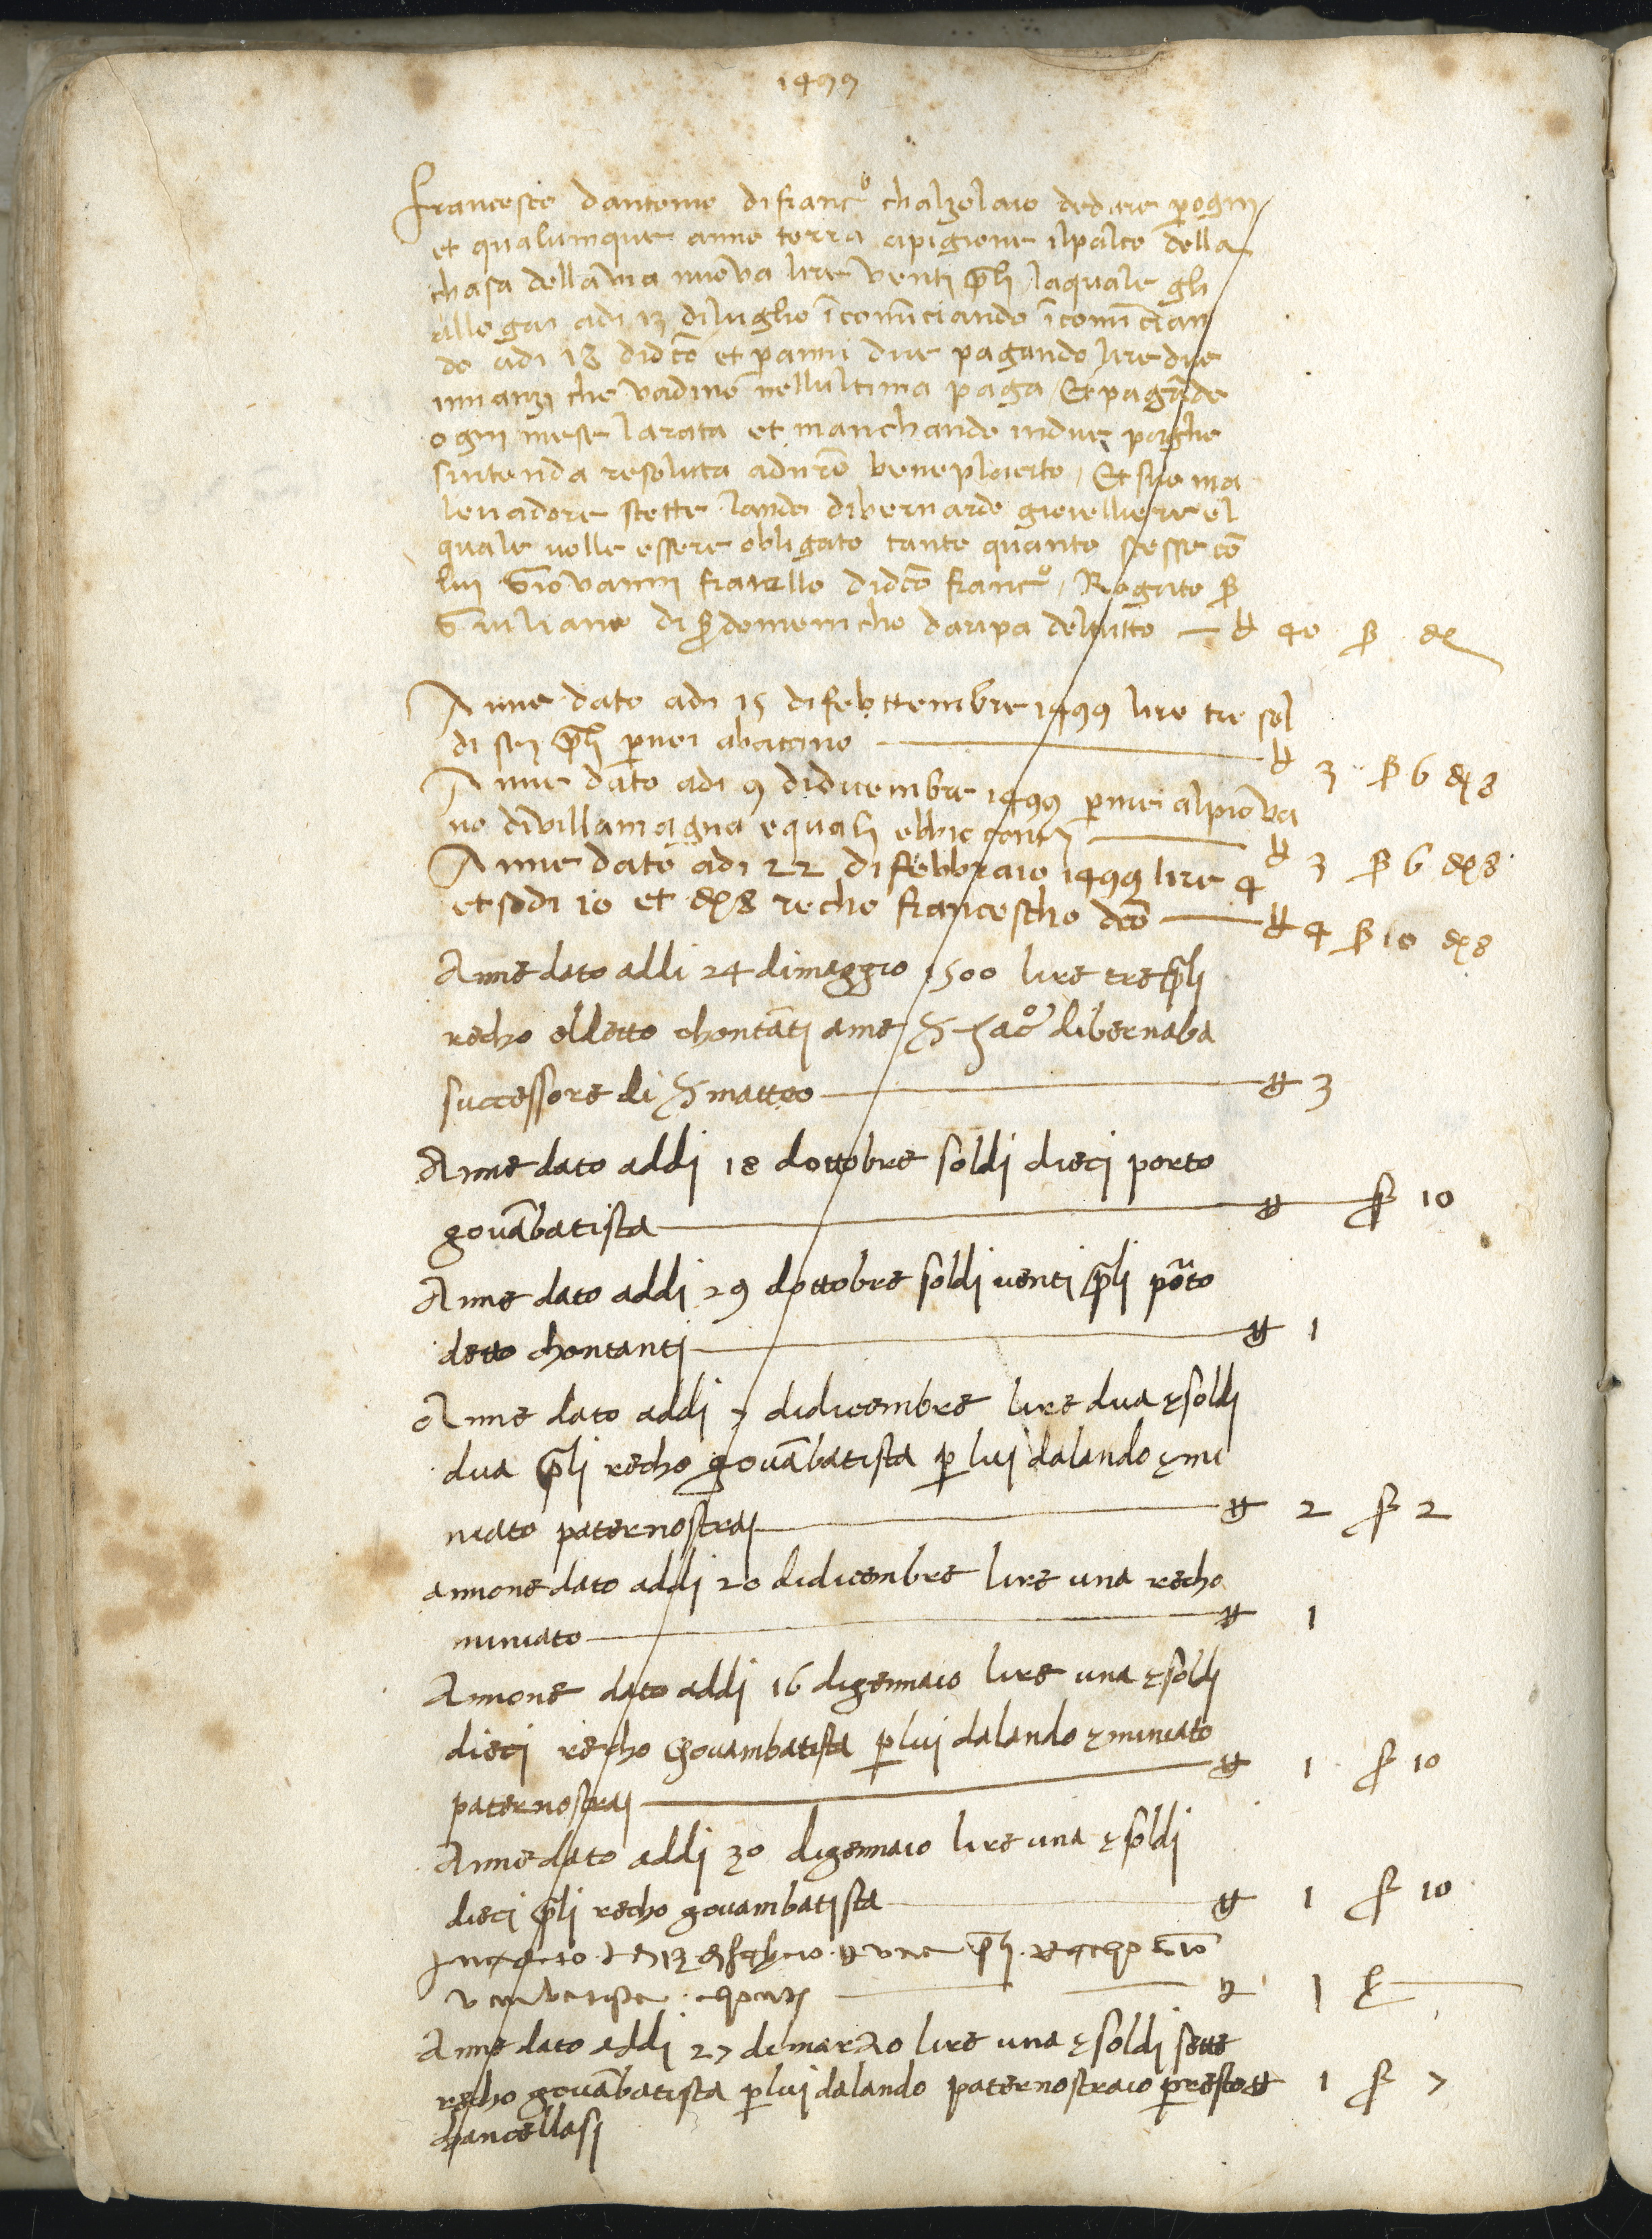 1499
Francesco dantonio di franc° chalzolaio de dare p ogni
et qualumque anno terra apigione ilpalco della
chasa della via nuova lire venti p̄li laquale gli
allogai adi 13 di luglio īcomīciando īcomīcian
do adi 18 didcō et p anni due pagando lire due
innanzi che vadino nellultima paga Et pagādo
ogni mese larata et manchando in due paghe
sintenda resoluta ad nr̄o beneplacito, Et sue ma
levadore stette lando dibernardo gioielliere el
quale volle essere obligato tanto quanto stesse cō
lui Giovanni fratello didcō franc°, Rogato s
Giuliano di s domenicho daripa deltutto — lb 40 s d
Anne dato adi 15 di febttembre 1499 lire tre sol
di sei p̄li p noi abatino — lb 3 s 6 d 8
Anne dato adi 9 didicembre 1499 p me alpiova
no divillamagna equali ebbi contj — lb 3 s 6 d 8
Anne dato adi 22 di febbraio 1499 lire 4
et sodi 10 et d 8 recho francescho dcō — lb 4 s 10 d 8
Anne dato addi 24 dimaggio 1500 lire tre p̄li
recho eldetto chontātj ame S Zac° dibernaba
successore di S matteo — lb 3
Anne dato addi 18 dottobre soldi dieci porto
govābatista — lb s 10
Anne dato addi 29 dottobre soldi venti p̄li pōto
detto chontantj — lb 1
Anne dato addi 7 didicembre lire dua e soldi
dua p̄li recho govābatista p lui dalando e mi
niato paternostraj — lb 2 s 2
annone dato addi 20 didicembre lire una recho
miniato — lb 1
Annone dato addi 16 digennaio lire una e soldi
dieci recho govambatista p lui dalando e miniato
paternostraj — lb 1 s 10
Anne dato addi 30 digennaio lire una e soldi
dieci p̄li recho govambatista — lb 1 s 10
lb una p̄li recho Giō
vanbatista chontj — lb 1 s —
Anne dato addi 27 dimarzo lire una e soldi sette
recho govābatista p lui dalando paternostraio p resto lb 1 s 7
chancellasi